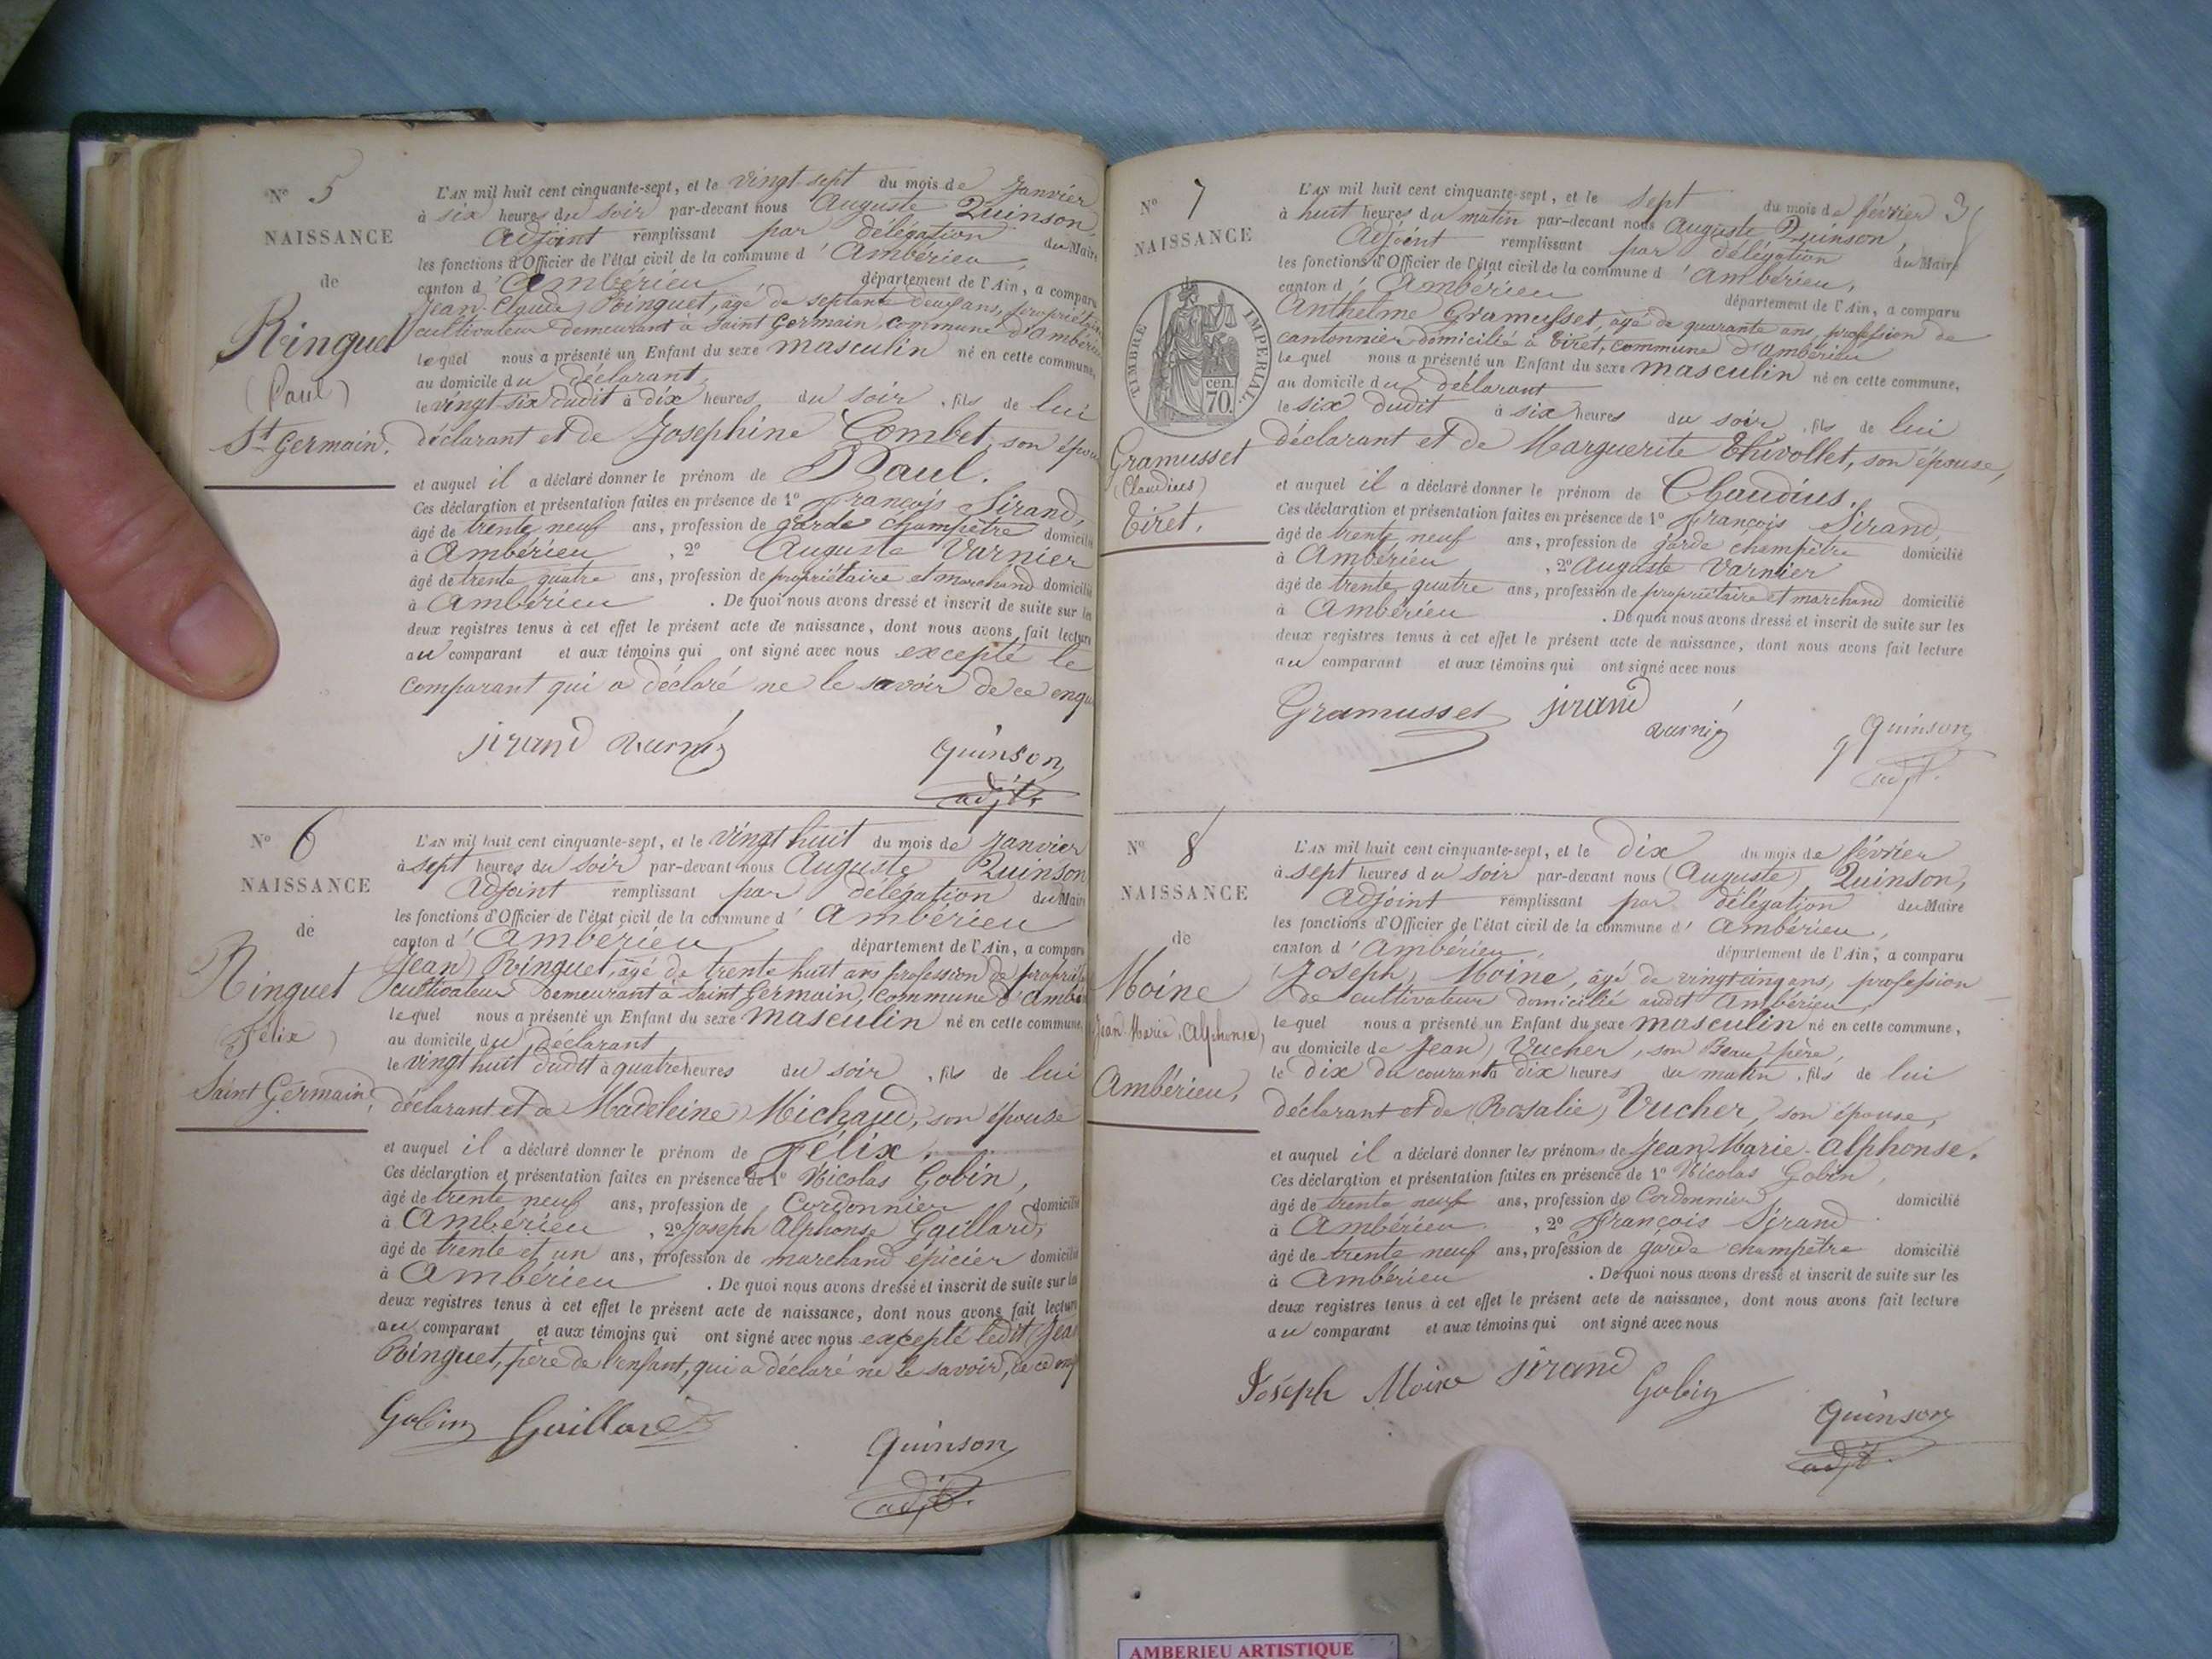 N° 5
NAISSANCE
de
Ringuet
(Paul)
St Germain.
L'AN mil huit cent cinquante-sept, et le vingt-sept du mois de Janvier
à six heures du soir par-devant nous Auguste Quinson,
Adjoint remplissant par délégation du Maire
les fonctions d'Officier de l'état civil de la commune d'Ambérieu,
canton d'Ambérieu département de l'Ain, a comparu
Jean-Claude Ringuet, âgé de septante deux ans, propriétaire
cultivateur demeurant à Saint Germain, commune d'Ambérieu
lequel nous a présenté un Enfant du sexe masculin né en cette commune,
au domicile du déclarant
le vingt-six dudit à dix heures du soir, fils de lui
déclarant et de Josephine Combet, son épouse
et auquel il a déclaré donner le prénom de Paul.
Ces déclaration et présentation faites en présence de 1° François Sirand,
âgé de trente neuf ans, profession de garde champêtre domicilié
à Ambérieu, 2° Auguste Varnier
âgé de trente quatre ans, profession de propriétaire et marchand domicilié
à Ambérieu. De quoi nous avons dressé et inscrit de suite sur les
deux registres tenus à cet effet le présent acte de naissance, dont nous avons fait lecture
au comparant et aux témoins qui ont signé avec nous excepté le
comparant qui a déclaré ne le savoir de ce enqu
Sirand Varnier
Quinson
adjt.
N° 6
NAISSANCE
de
Ringuet
(Félix)
Saint Germain,
L'AN mil huit cent cinquante-sept, et le vingt huit du mois de Janvier
à sept heures du soir par-devant nous Auguste Quinson
Adjoint remplissant par délégation du Maire
les fonctions d'Officier de l'état civil de la commune d'Ambérieu
canton d'Ambérieu département de l'Ain, a comparu
Jean Ringuet, âgé de trente huit ans profession de propriétaire
cultivateur demeurant à Saint Germain, commune d'Ambé
lequel nous a présenté un Enfant du sexe masculin né en cette commune,
au domicile du déclarant
le vingt huit dudit à quatre heures du soir, fils de lui
déclarant et de Madeleine Michaud, son épouse
et auquel il a déclaré donner le prénom de Félix.
Ces déclaration et présentation faites en présence de 1° Nicolas Gobin,
âgé de trente neuf ans, profession de Cordonnier domicilié
à Ambérieu, 2° Joseph Alphonse Gaillard,
âgé de trente et un ans, profession de marchand épicier domicilié
à Ambérieu. De quoi nous avons dressé et inscrit de suite sur les
deux registres tenus à cet effet le présent acte de naissance, dont nous avons fait lecture
au comparant et aux témoins qui ont signé avec nous excepté ledit Jean
Ringuet, père de l'enfant, qui a déclaré ne le savoir, de ce enq
Gobin Gaillard
Quinson
adjt.
N° 7
NAISSANCE
TIMBRE IMPERIAL.
70 cen.
Gramusset
(Claudius)
Tiret,
3
L'AN mil huit cent cinquante-sept, et le sept du mois de février
à huit heures du matin par-devant nous Auguste Quinson,
Adjoint remplissant par délégation du Maire
les fonctions d'Officier de l'état civil de la commune d'Ambérieu,
canton d'Ambérieu département de l'Ain, a comparu
Anthelme Gramusset, âgé de quarante ans, profession de
cantonnier domicilié à Tiret, commune d'Ambérieu
lequel nous a présenté un Enfant du sexe masculin né en cette commune,
au domicile du déclarant
le six dudit à six heures du soir, fils de lui
déclarant et de Marguerite Thivollet, son épouse,
et auquel il a déclaré donner le prénom de Claudius.
Ces déclaration et présentation faites en présence de 1° François Sirand,
âgé de trente neuf ans, profession de garde champêtre domicilié
à Ambérieu, 2° Auguste Varnier
âgé de trente quatre ans, profession de propriétaire et marchand domicilié
à Ambérieu. De quoi nous avons dressé et inscrit de suite sur les
deux registres tenus à cet effet le présent acte de naissance, dont nous avons fait lecture
au comparant et aux témoins qui ont signé avec nous
Gramusset Sirand
Varnier
Quinson
adjt.
N° 8
NAISSANCE
de
Moine
Jean-Marie, Alphonse,
Ambérieu,
L'AN mil huit cent cinquante-sept, et le dix du mois de février
à sept heures du soir par-devant nous Auguste Quinson,
Adjoint remplissant par délégation du Maire
les fonctions d'Officier de l'état civil de la commune d'Ambérieu,
canton d'Ambérieu, département de l'Ain, a comparu
Joseph Moine, âgé de vingt cinq ans, profession
de cultivateur domicilié audit Ambérieu,
lequel nous a présenté un Enfant du sexe masculin né en cette commune,
au domicile de Jean Vucher, son Beau père,
le dix du courant à dix heures du matin, fils de lui
déclarant et de Rosalie Vucher, son épouse,
et auquel il a déclaré donner les prénoms de Jean Marie-Alphonse.
Ces déclaration et présentation faites en présence de 1° Nicolas Gobin,
âgé de trente neuf ans, profession de Cordonnier domicilié
à Ambérieu, 2° François Sirand
âgé de trente neuf ans, profession de garde champêtre domicilié
à Ambérieu. De quoi nous avons dressé et inscrit de suite sur les
deux registres tenus à cet effet le présent acte de naissance, dont nous avons fait lecture
au comparant et aux témoins qui ont signé avec nous
Joseph Moine Sirand
Gobin
Quinson
adjt.
AMBERIEU ARTISTIQUE